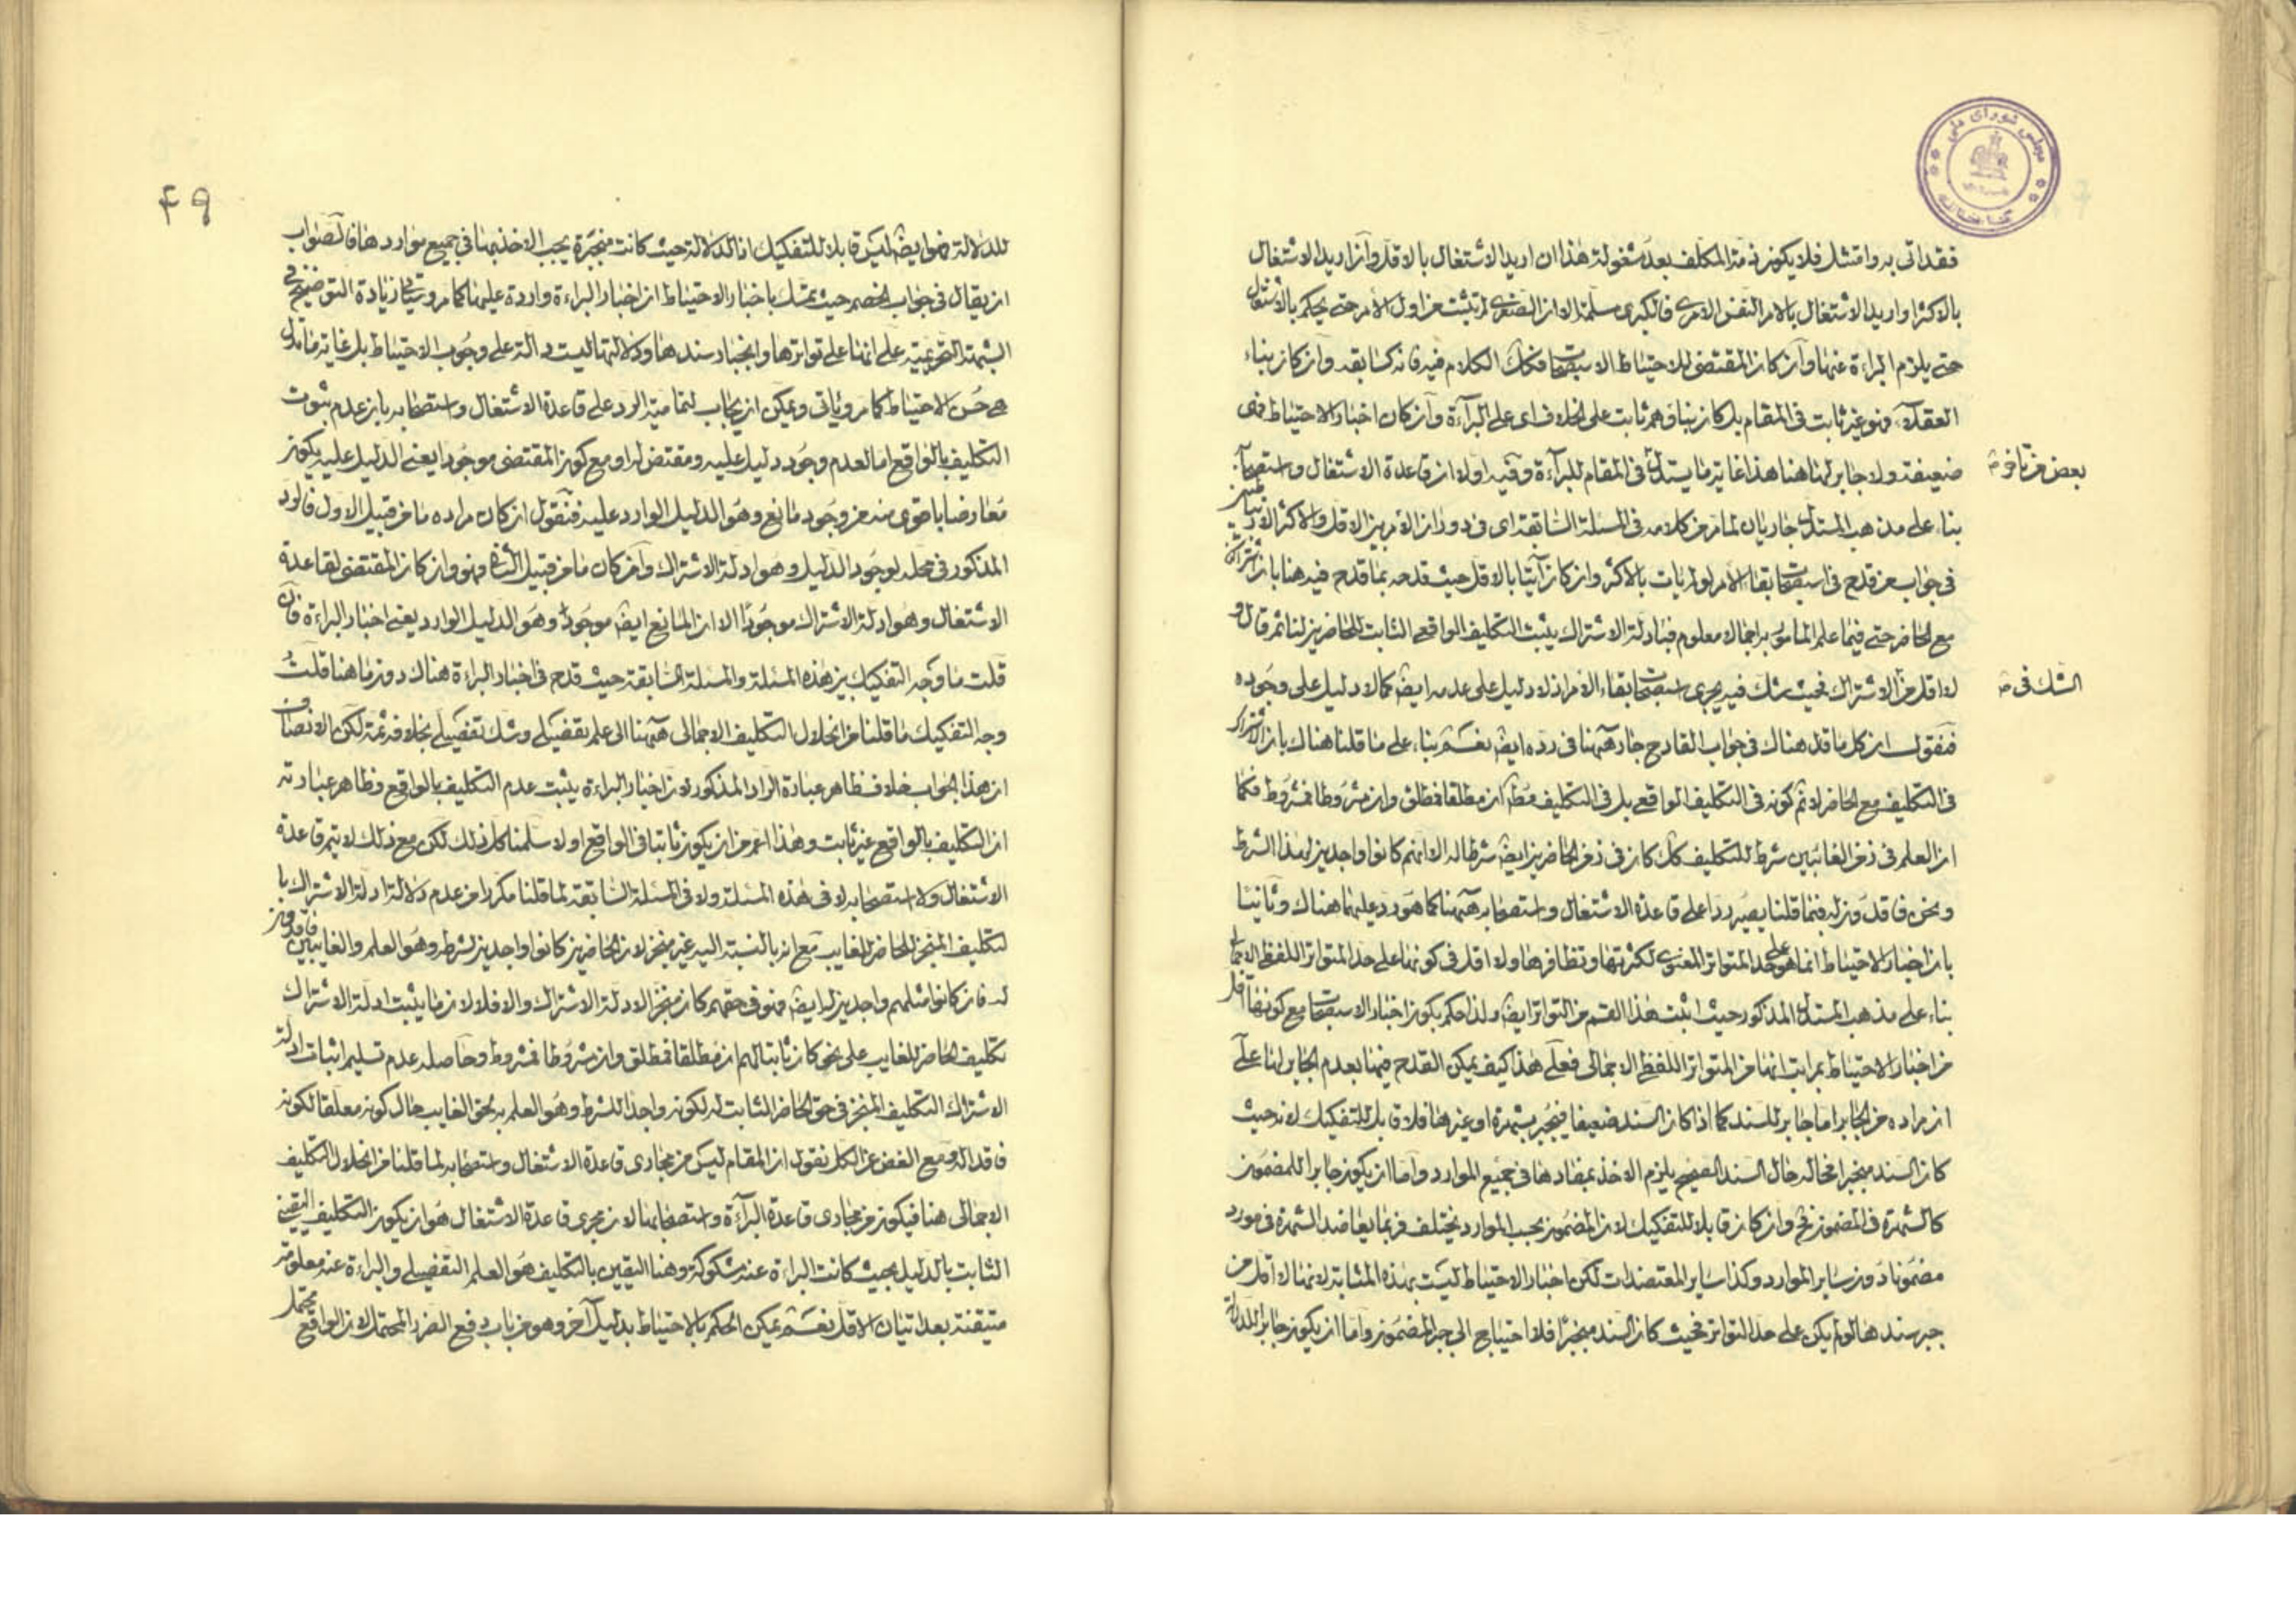 فقد اتى به وامتثل فلا يكون ذمة المكلف بعد مشغولة هذا ان اريد الاشتغال بالاقل وآن اريد الاشتغال
بالاكثر او اريد الاشتغال بالامر النفس الامرى فالكبرى مسلمة الا ان الصغرى لم تثبت من اول الامر حتى يحكم بالاشتغال
حتى يلزم البراءة عنها وآن كان المقتضى للاحتياط الاستصحاب فكك الكلام فيه فانه كسابقه وآن كان بناء
العقلاء فهو غير ثابت فى المقام بل كان بناؤهم ثابت على الخلاف اى على البراءة وآن كان اخبار الاحتياط فهى
ضعيفة ولا جابر لها هنا هذا غاية ما يستدل فى المقام للبراءة وفيه اولا ان قاعدة الاشتغال واستصحابه
بعض من تاخر
بناء على مذهب المستدل جاريان لما مر من كلامه فى المسئلة السابقة اى فى دوران الامر بين الاقل والاكثر
فى جواب من قدح فى استصحاب بقاء الامر لو لم يات بالاكثر وان كان آتيا بالاقل حيث قدحه بما قدح فيه هنا بان
مع الحاضر حتى فيما علم المامور به اجمالا معلوم فبادلة الاشتراك يثبت التكليف الواقعى الثابت للحاضرين لنا ثم قال و
لا اقل من الاشتراك فحيث شك فيه يجرى استصحاب بقاء الامر اذ لا دليل على عدمه ايضا كما لا دليل على وجوده
الشك فى
فنقول ان كل ما قال هناك فى جواب القادح جار ههنا فى رده ايضا نعم بناء على ما قلنا هناك بان الاشتراك
فى التكليف مع الحاضر لا ثم كونه فى التكليف الواقعى بل فى التكليف مط ان مطلقا فمطلق وان مشروطا فمشروط فكما
ان العلم فى زمن الغائبين شرط للتكليف كك كان فى زمن الحاضرين ايضا شرطا له الا انهم كانوا واجدين لهذا الشرط
ونحن فاقدون له فما قلنا يصير ردا على قاعدة الاشتغال واستصحابه ههنا كما هو رد عليهما هناك وثانيا
بان اخبار الاحتياط انما هو على حد المتواتر المعنوى لكثرتها وتظافرها ولا اقل فى كونها على حد المتواتر اللفظى الاجمالى
بناء على مذهب المستدل المذكور حيث اثبت هذا القسم من التواتر ايضا ولذا حكم بكون اخبار الاستصحاب مع كونها اقل
من اخبار الاحتياط بمراتب انها من المتواتر اللفظى الاجمالى فعلى هذا كيف يمكن القدح فيها بعدم الجابر لها على
ان مراده من الجابر اما جابر للسند كما اذا كان السند ضعيفا فينجبر بشهرة او غيرها فلا قابل للتفكيك لانه حيث
كان السند منجبرا فحاله حال السند الصحيح يلزم الاخذ بمفادها فى جميع الموارد واما ان يكون جابرا للمضمون
كالشهرة فى المضمون فح وان كان قابلا للتفكيك لان المضمون بحسب الموارد يختلف فربما يعاضد الشهرة فى مورد
مضمونا دون ساير الموارد وكذا ساير المعتضدات لكن اخبار الاحتياط ليست بهذه المثابة لانها لا اقل من
جبر سندها لو لم يكن على حد التواتر فحيث كان السند منجبرا فلا احتياج الى جبر المضمون واما ان يكون جابرا للدلالة
۴۹
للدلالة فهو ايضا ليس قابلا للتفكيك اذ الدلالة حيث كانت منجبرة يجب الاخذ بها فى جميع مواردها فالصواب
ان يقال فى جواب الخصم حيث يتمسك باخبار الاحتياط ان اخبار البراءة واردة عليها كما مر وسياتى زيادة التوضيح فى
الشبهة التحريمية على انها على تواترها وانجبار سندها ودلالتها ليست دالة على وجوب الاحتياط بل غاية ما تدل
هى حسن الاحتياط كما مر وياتى ويمكن ان يجاب لتمامية الورد على قاعدة الاشتغال واستصحابه بان عدم ثبوت
التكليف بالواقع اما لعدم وجود دليل عليه ومقتض له او مع كون المقتضى موجودا يعنى الدليل عليه يكون
معارضا باقوى منه من وجود مانع وهو الدليل الوارد عليه فنقول ان كان مراده ما من قبيل الاول فالورد
المذكور فى محله لوجود الدليل وهو ادلة الاشتراك وآن كان ما من قبيل الثانى فهو وان كان المقتضى لقاعدة
الاشتغال وهو ادلة الاشتراك موجودا الا ان المانع ايضا موجود وهو الدليل الوارد يعنى اخبار البراءة فان
قلت ما وجه التفكيك بين هذه المسئلة والمسئلة السابقة حيث قدح فى اخبار البراءة هناك دون ما هنا قلت
وجه التفكيك ما قلنا من انحلال التكليف الاجمالى ههنا الى علم تفصيلى وشك تفصيلى بخلافه ثمة لكن الانصاف
ان هذا الجواب خلاف ظاهر عبارة الراد المذكور لان اخبار البراءة يثبت عدم التكليف بالواقع وظاهر عبارته
ان التكليف بالواقع غير ثابت وهذا اعم من ان يكون ثابتا فى الواقع اولا سلمنا كل ذلك لكن مع ذلك لا يتم قاعدة
الاشتغال ولا استصحابه لا فى هذه المسئلة ولا فى المسئلة السابقة لما قلنا مكررا من عدم دلالة ادلة الاشتراك با
لتكليف المنجز للحاضر للغايب مع انه بالنسبة اليه غير منجز لان الحاضرين كانوا واجدين لشرطه وهو العلم والغايبين فاقدون
له فان كانوا مثلهم واجدين له ايضا فهو فى حقهم كان منجزا لادلة الاشتراك والا فلا لان ما يثبت ادلة الاشتراك
تكليف الحاضر للغايب على نحو كان ثابتا لهم ان مطلقا فمطلق وان مشروطا فمشروط وحاصله عدم تسليم اثبات ادلة
الاشتراك التكليف المنجز فى حق الحاضر الثابت له لكونه واجدا للشرط وهو العلم به بحق الغايب حال كونه معلقا لكونه
فاقدا له ومع الغض عن الكل نقول ان المقام ليس من مجارى قاعدة الاشتغال واستصحابه لما قلنا من انحلال التكليف
الاجمالى هنا فيكون من مجارى قاعدة البراءة واستصحابها لان مجرى قاعدة الاشتغال هو ان يكون التكليف اليقينى
الثابت بالدليل بحيث كانت البراءة عنه مشكوكة وهنا اليقين بالتكليف هو العلم التفصيلى والبراءة عنه معلومة
متيقنة بعد اتيان الاقل نعم يمكن الحكم بالاحتياط بدليل آخر وهو من باب دفع الضرر المحتمل لان الواقع محتمل